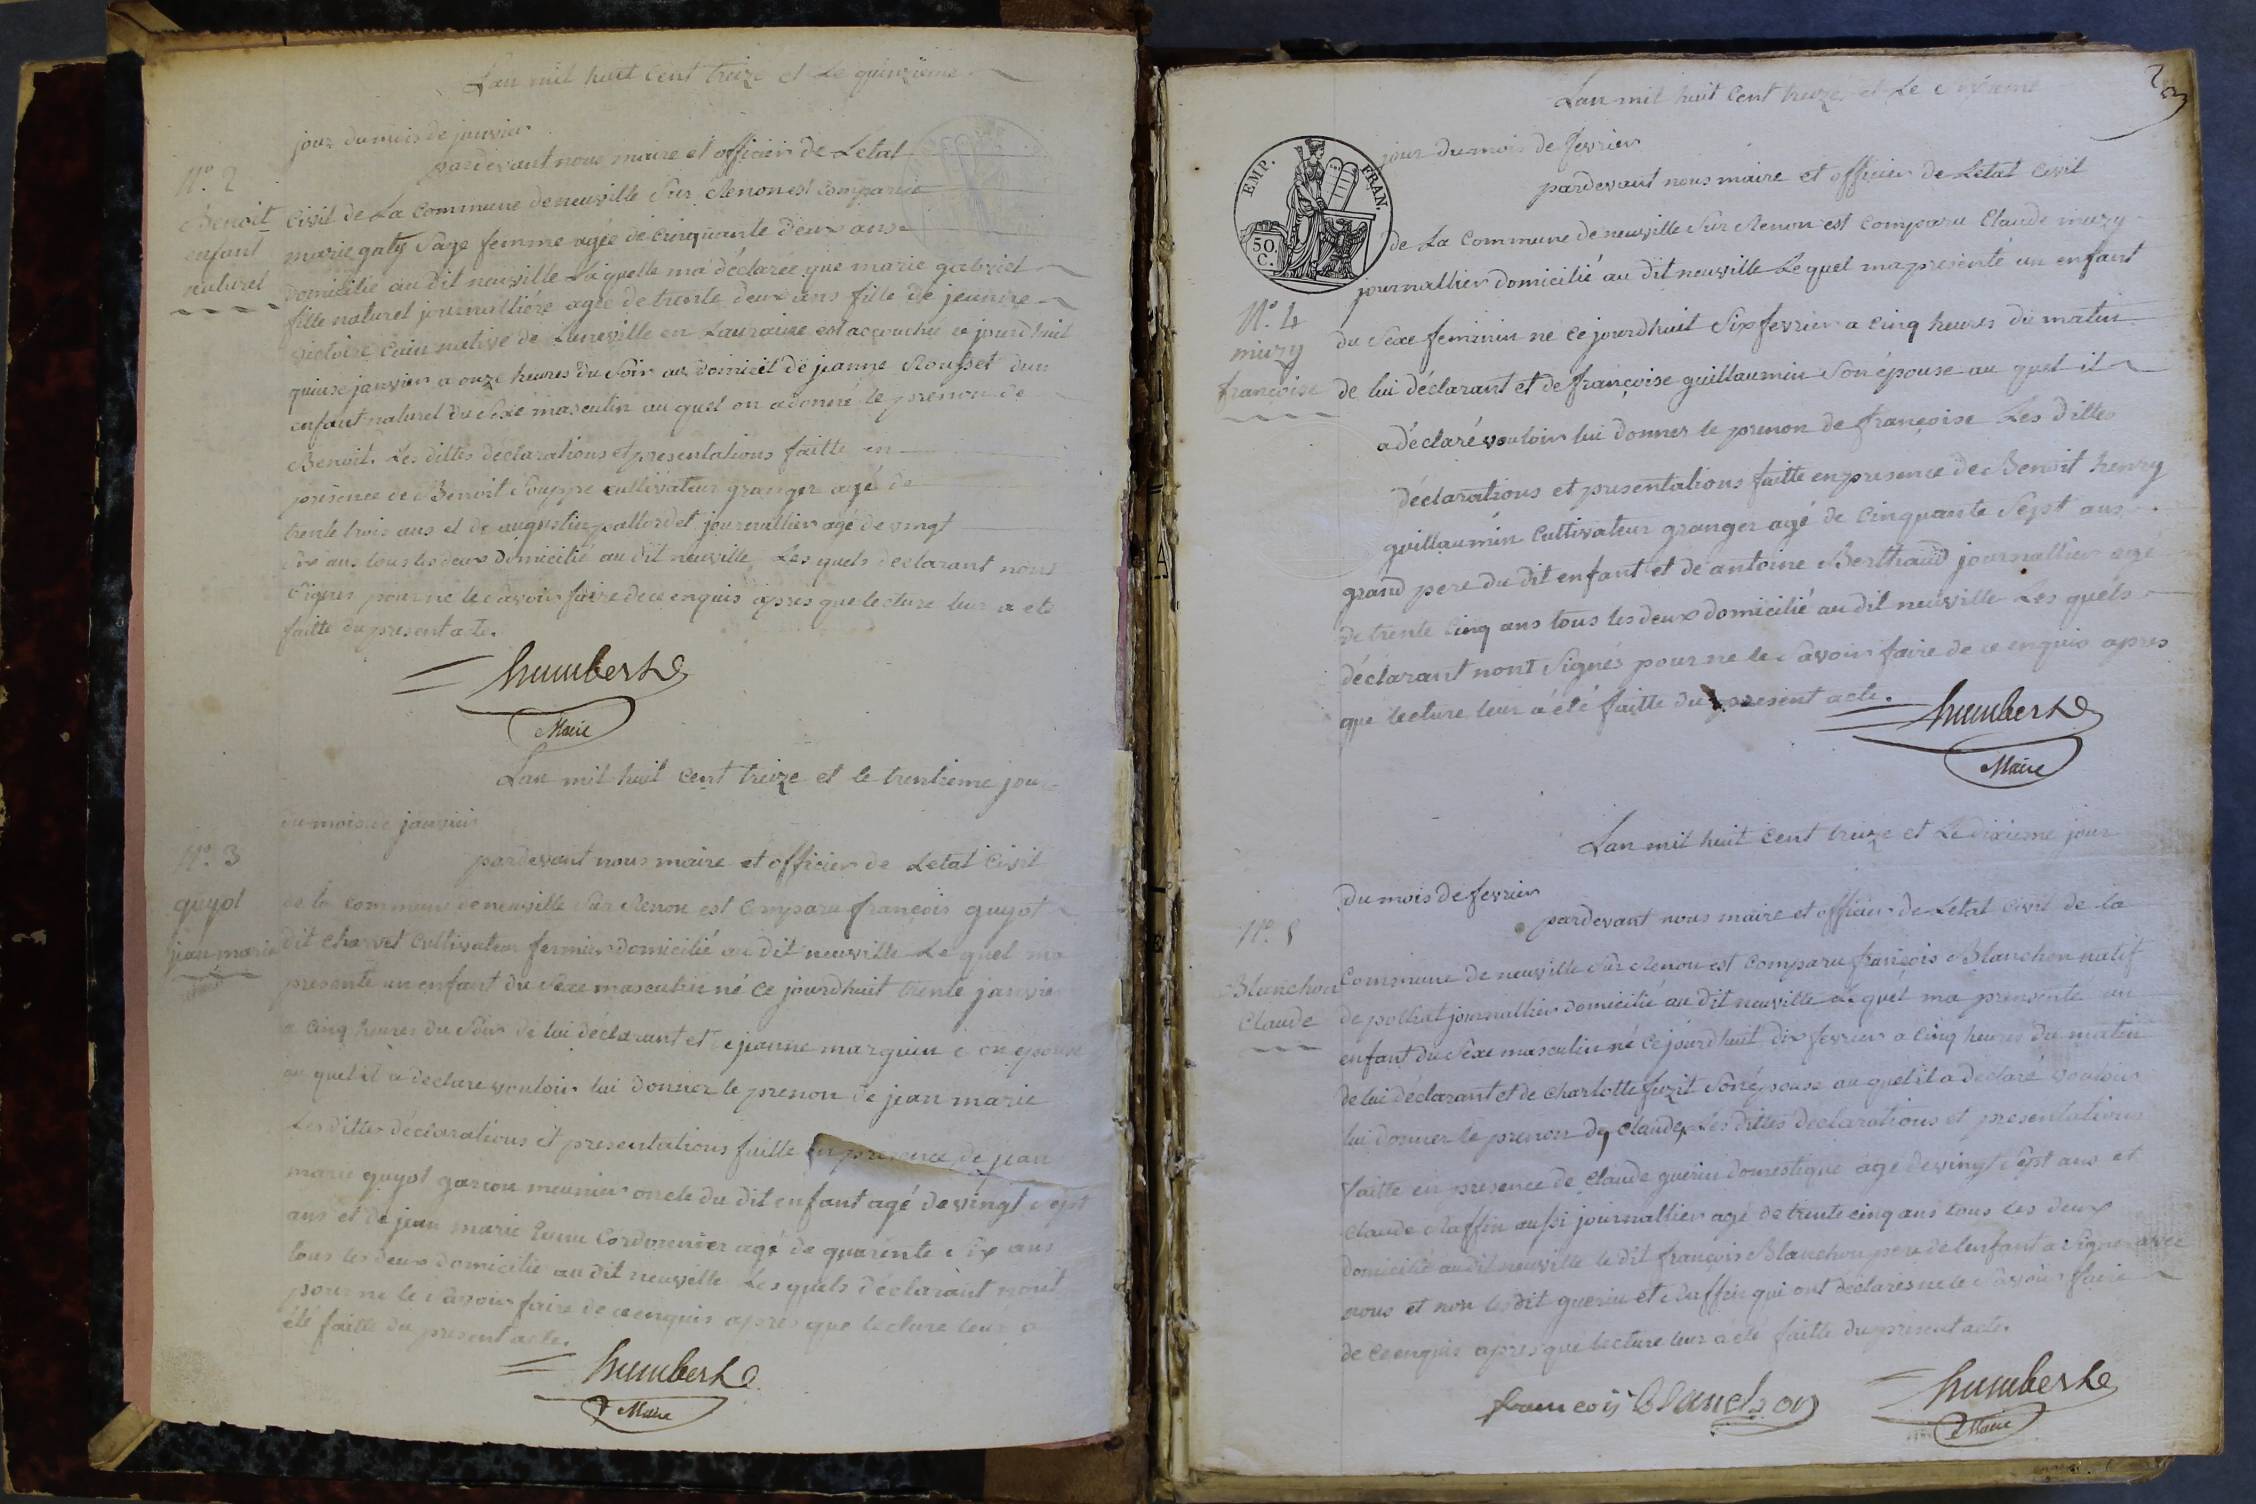 Lan mil huit Cent treize et Le quinzieme
jour du mois de janvier
pardevant nous maire et officier de Letat
N°. 2
Benoit
enfant
naturel
Civil de La Commune de neuville Sur Renon est Comparue
marie gaty Sage femme agée de Cinquante deux ans
domicilié au dit neuville Laquelle ma déclarée que marie gabriel
fille naturel journalliere agée de trente deux ans fille de jeanne
victoire Cuin native de Luneville en Lauraine est accouchée ce jourdhuit
quinse janvier a onze heures du Soir au domicil de jeanne Rousset dun
enfant naturel du Sexe masculin au quel on a donné le prenon de
Benoit. Les dittes déclarations et presentations faitte en
présence de Benoit Souppe cultivateur granger agé de
trente trois ans et de augustin pallordet journallier agé de vingt
dix ans tous les deux domicilié au dit neuville Les quels déclarant nont
Signés pour ne le Savoir faire de ce enquis apres que lecture leur a eté
faitte du present acte.
humbert
Maire
Lan mil huit Cent treize et le trentieme jour
du mois de janvier
N°. 3
guyot
jean marie
pardevant nous maire et officier de Letat Civil
de la Commune de neuville Sur Renon est Comparu françois guyot
dit charvet Cultivateur fermier domicilié au dit neuville Le quel ma
presenté un enfant du Sexe masculin né Ce jourdhuit trente janvier
a Cinq heures du Soir de lui déclarant et de jeanne marguin Son epouse
au quel il a declare vouloir lui donner le prenon de jean marie
Les dittes déclarations et presentations faitte en présence de jean
marie guyot garcon meunier oncle du dit enfant agé de vingt Sept
ans et de jean marie Cordonnier agé de quarente Six ans
tous les deux domicilié au dit neuville Les quels déclarant nont
pour ne le Savoir faire de ce enquis apres que lecture leur a
été faitte du present acte.
humbert
Maire
23
Lan mil huit Cent treize et Le Sixieme
jour du mois de fevrier
EMP. FRAN.
50. C.
pardevant nous maire et officier de Letat Civil
de La Commune de neuville Sur Renon est Comparu Claude muzy
journallier domicilié au dit neuville Le quel ma presenté un enfant
N°. 4
muzy
françoise
du Sexe feminin né Ce jourdhuit Six fevrier a Cinq heures du matin
de lui déclarant et de françoise guillaumin Son épouse au quel il
a déclaré vouloir lui donner le prenon de françoise Les dittes
déclarations et presentations faitte en presence de Benoit henry
guillaumin Cultivateur granger agé de Cinquante Sept ans
grand pere du dit enfant et de antoine Berthaud journallier agé
de trente Cinq ans tous les deux domicilié au dit neuville Les quéls
déclarant nont Signés pour ne le Savoir faire de ce enquis apres
que lecture leur a été faitte du present acte.
humbert
Maire
Lan mil huit Cent treize et Le dixieme jour
du mois de fevrier
N°. 5
Blanchon
Claude
pardevant nous maire et officier de Letat Civil de la
Commune de neuville Sur Renon est Comparu françois Blanchon natif
de polliat journallier domicilié au dit neuville Le quel ma presenté un
enfant du Sexe masculin né Ce jourdhuit dix fevrier a Cinq heures du matin
de lui déclarant et de Charlotte fuzit Son épouse au quel il a declaré vouloir
lui donner le prenon de Claude Les dittes declarations et presentations
faitte en presence de Claude guerin domestique agé de vingt Sept ans et
Claude Raffin aussi journallier agé de trente cinq ans tous les deux
domicilié au dit neuville le dit françois Blanchon pere de lenfant a Signé avec
nous et non les dit guerin et Raffin qui ont declarés ne le Savoir faire
de ce enquis apres que lecture leur a été faitte du present acte.
francois blanchon
humbert
Maire